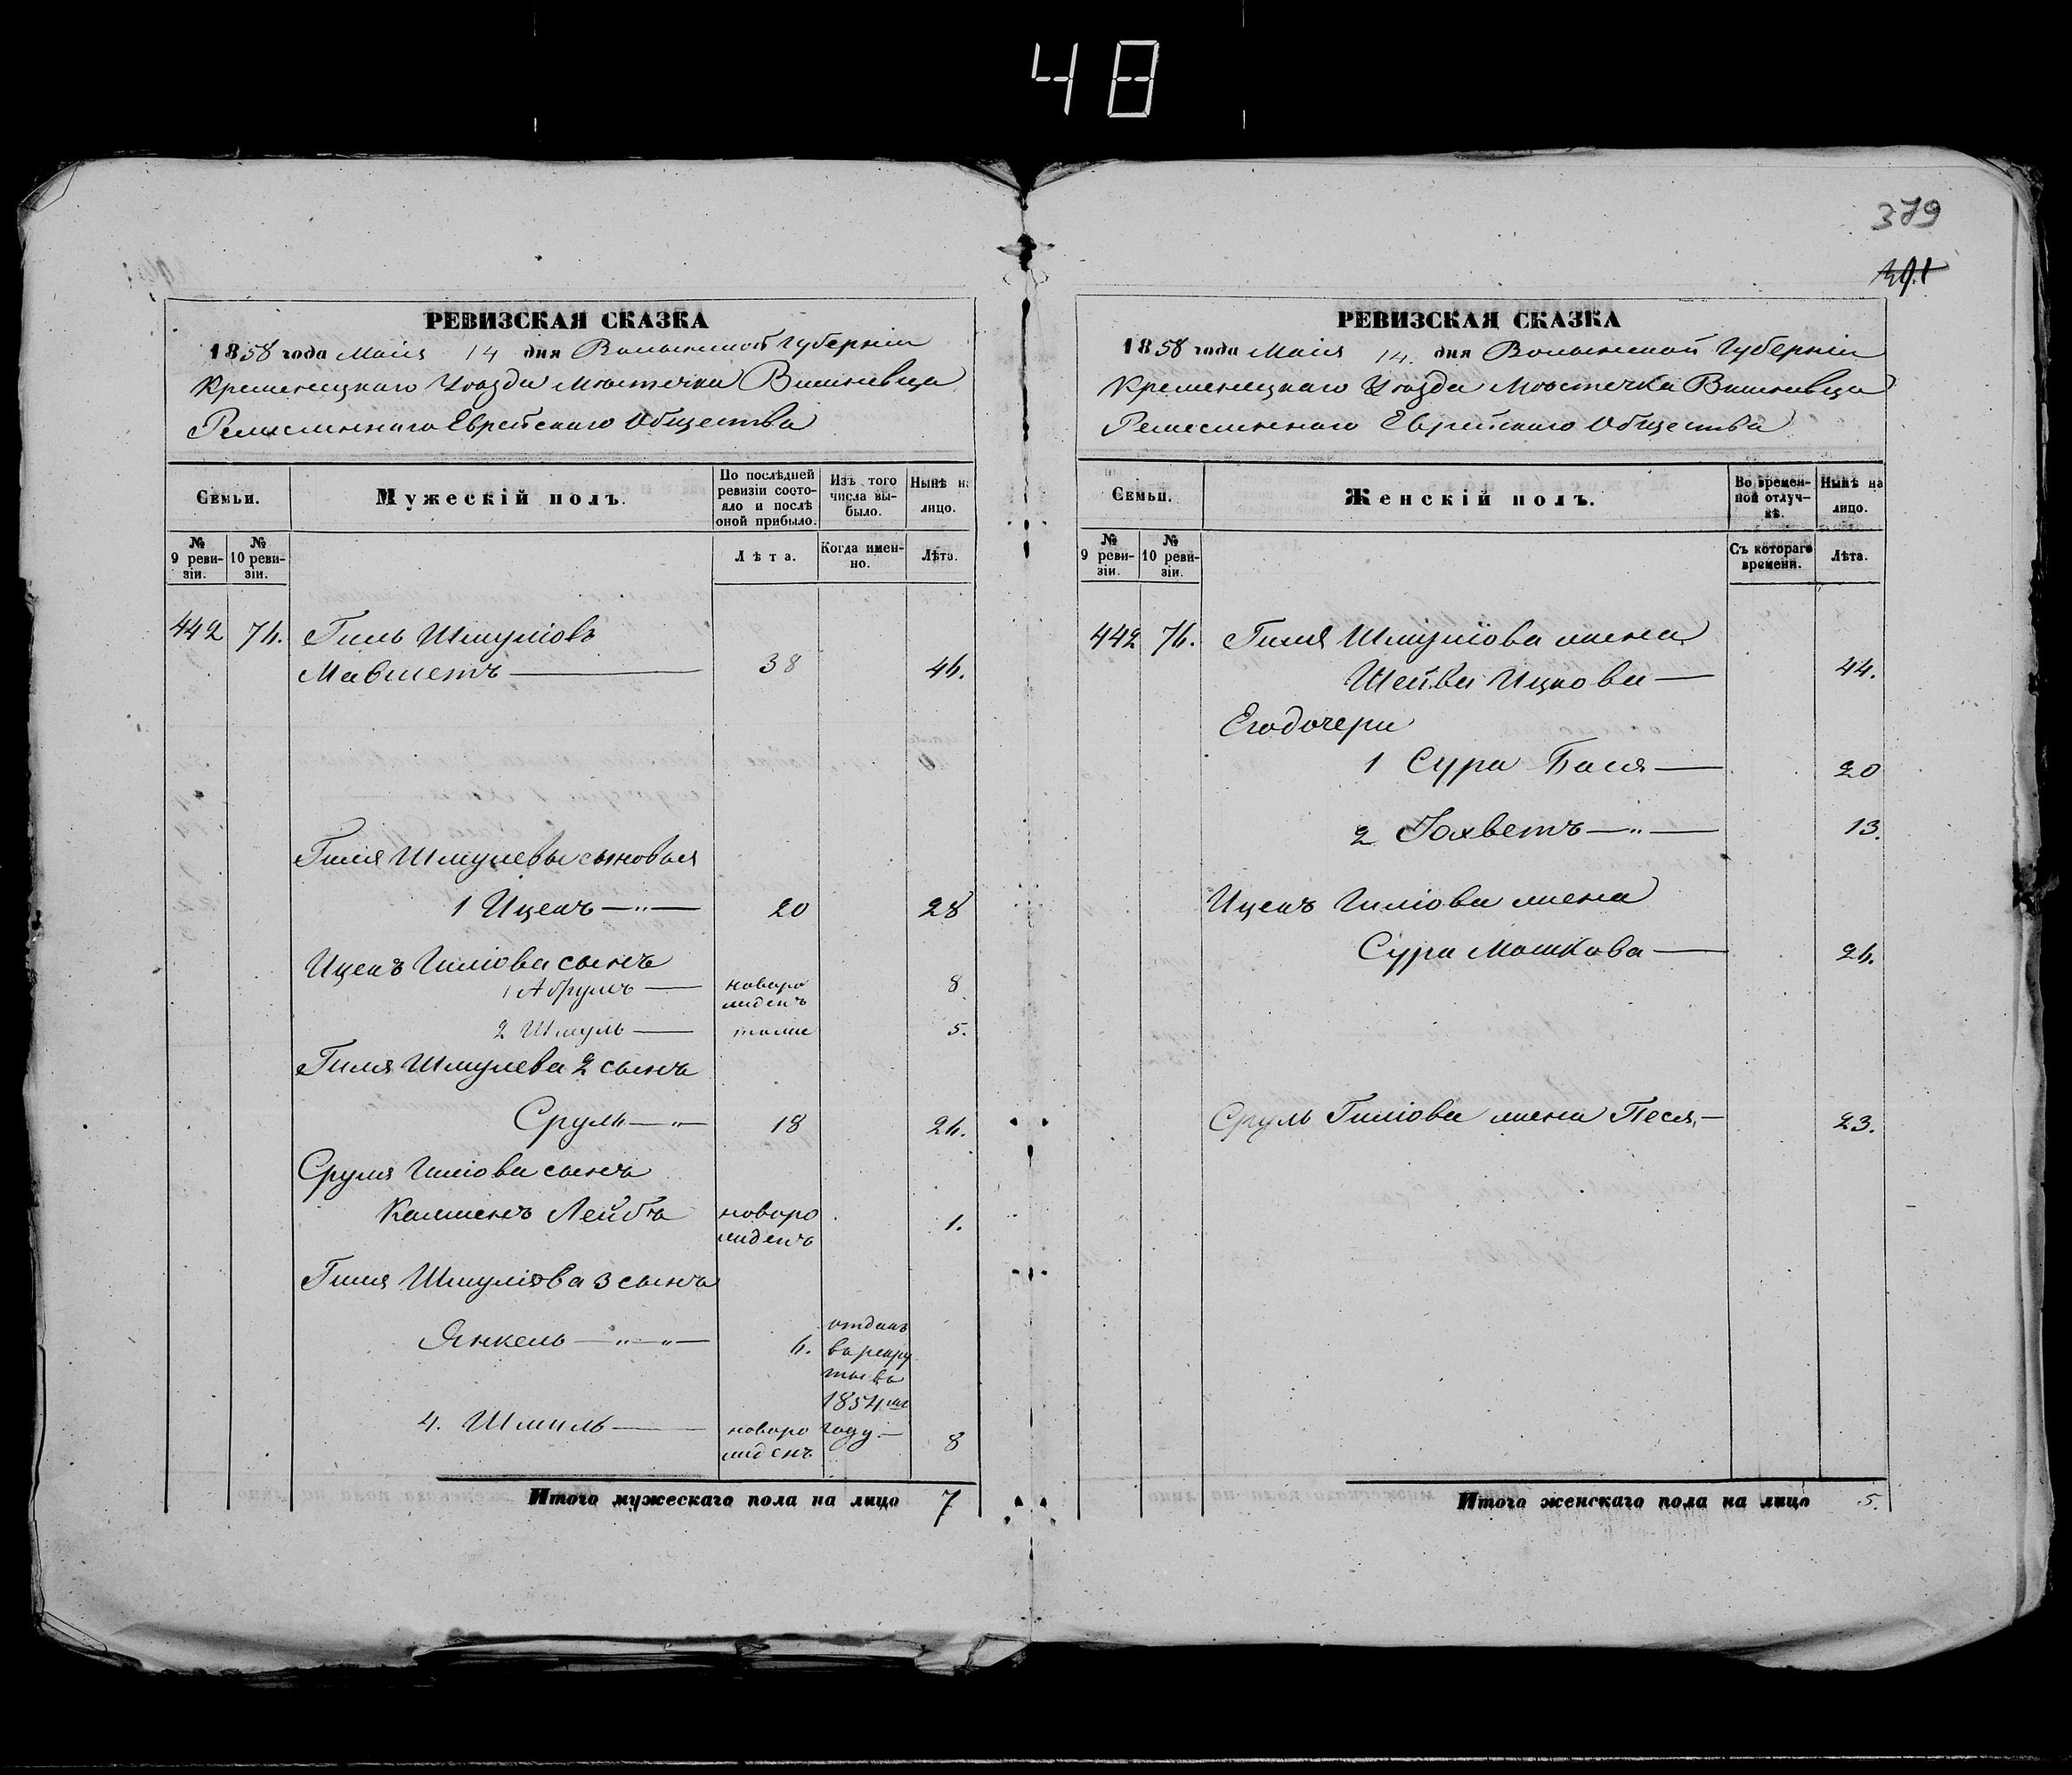 48
379
391
РЕВИЗСКАЯ СКАЗКА
1858 года Маія 14 дня Волынской Губерніи
Кременецкаго Уѣзда Мѣстечка Вишневца
Ремесленнаго Еврейскаго Общества
Семьи.
Мужескій полъ.
По послѣдней ревизіи состояло и послѣ оной прибыло.
Изъ того числа выбыло.
Нынѣ на лицо.
№ 9 ревизіи.
№ 10 ревизіи.
Лѣта.
Когда именно.
Лѣта.
442 76. Гиль Шмуліовъ
38 46.
Гиля Шмулевы сыновья
1 Ицекъ —"— 20 28
Ицекъ Гиліова сынъ
1 Абрумъ — новорожденъ 8
2 Шмуль — тоже 5.
Гиля Шмулева 2 сынъ
Сруль —"— 18 26.
Сруля Гиліова сынъ
Кальменъ Лейбъ новорожденъ 1.
Гиля Шмуліова 3 сынъ
Янкель —"—"— 6. отданъ въ рекруты въ 1854мъ году.—
4. Шмиль — новорожденъ 8
Итого мужескаго пола на лицо 7
РЕВИЗСКАЯ СКАЗКА
1858 года Маія 14. дня Волынской Губерніи
Кременецкаго Уѣзда Мѣстечка Вишневца
Ремесленнаго Еврейскаго Общества
Семьи.
Женскій полъ.
Во временной отлучкѣ.
Нынѣ на лицо.
№ 9 ревизіи.
№ 10 ревизіи.
Съ котораго времени.
Лѣта.
442 76. Гиля Шмуліова жена
Шейва Ицкова — 44.
Его дочери
1 Сура Бася — 20
2 Іохветъ —"— 13.
Ицекъ Гиліова жена
Сура Мошкова — 26.
Сруль Гиліова жена Песя,— 23.
Итого женскаго пола на лицо 5.